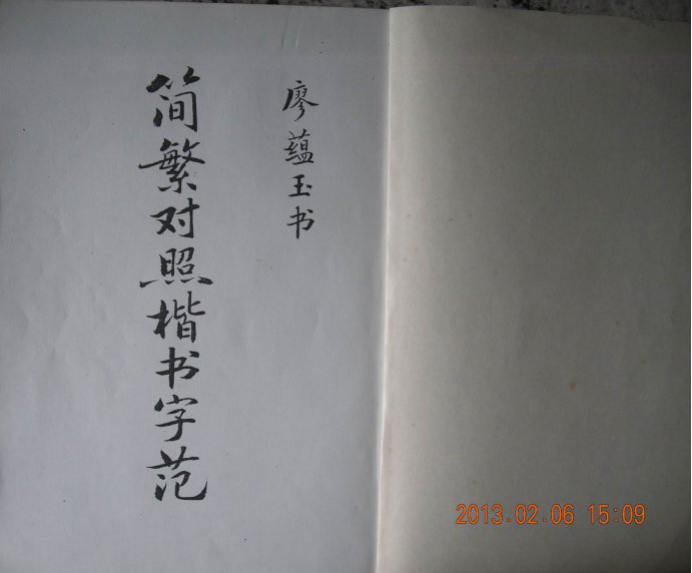 廖蕴玉书
简繁对照楷书字范
2013.02.06 15:09